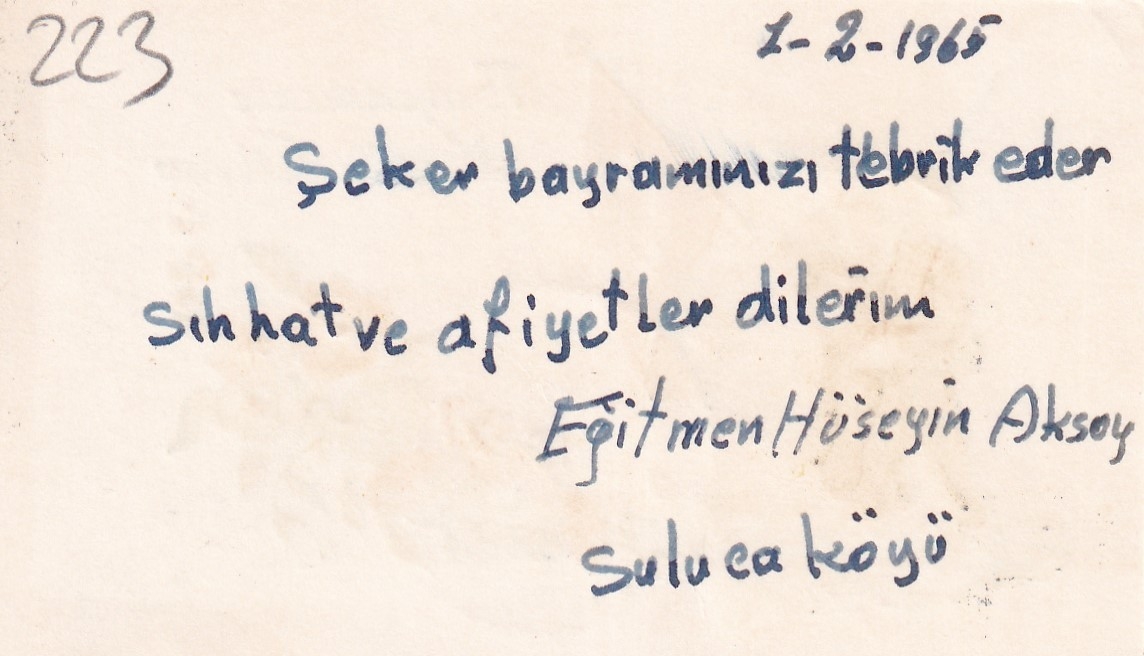 223
1-2-1965
Şeker bayramınızı tebrik eder
Sıhhat ve afiyetler dilerim
Eğitmen Hüseyin Aksoy
Suluca köyü